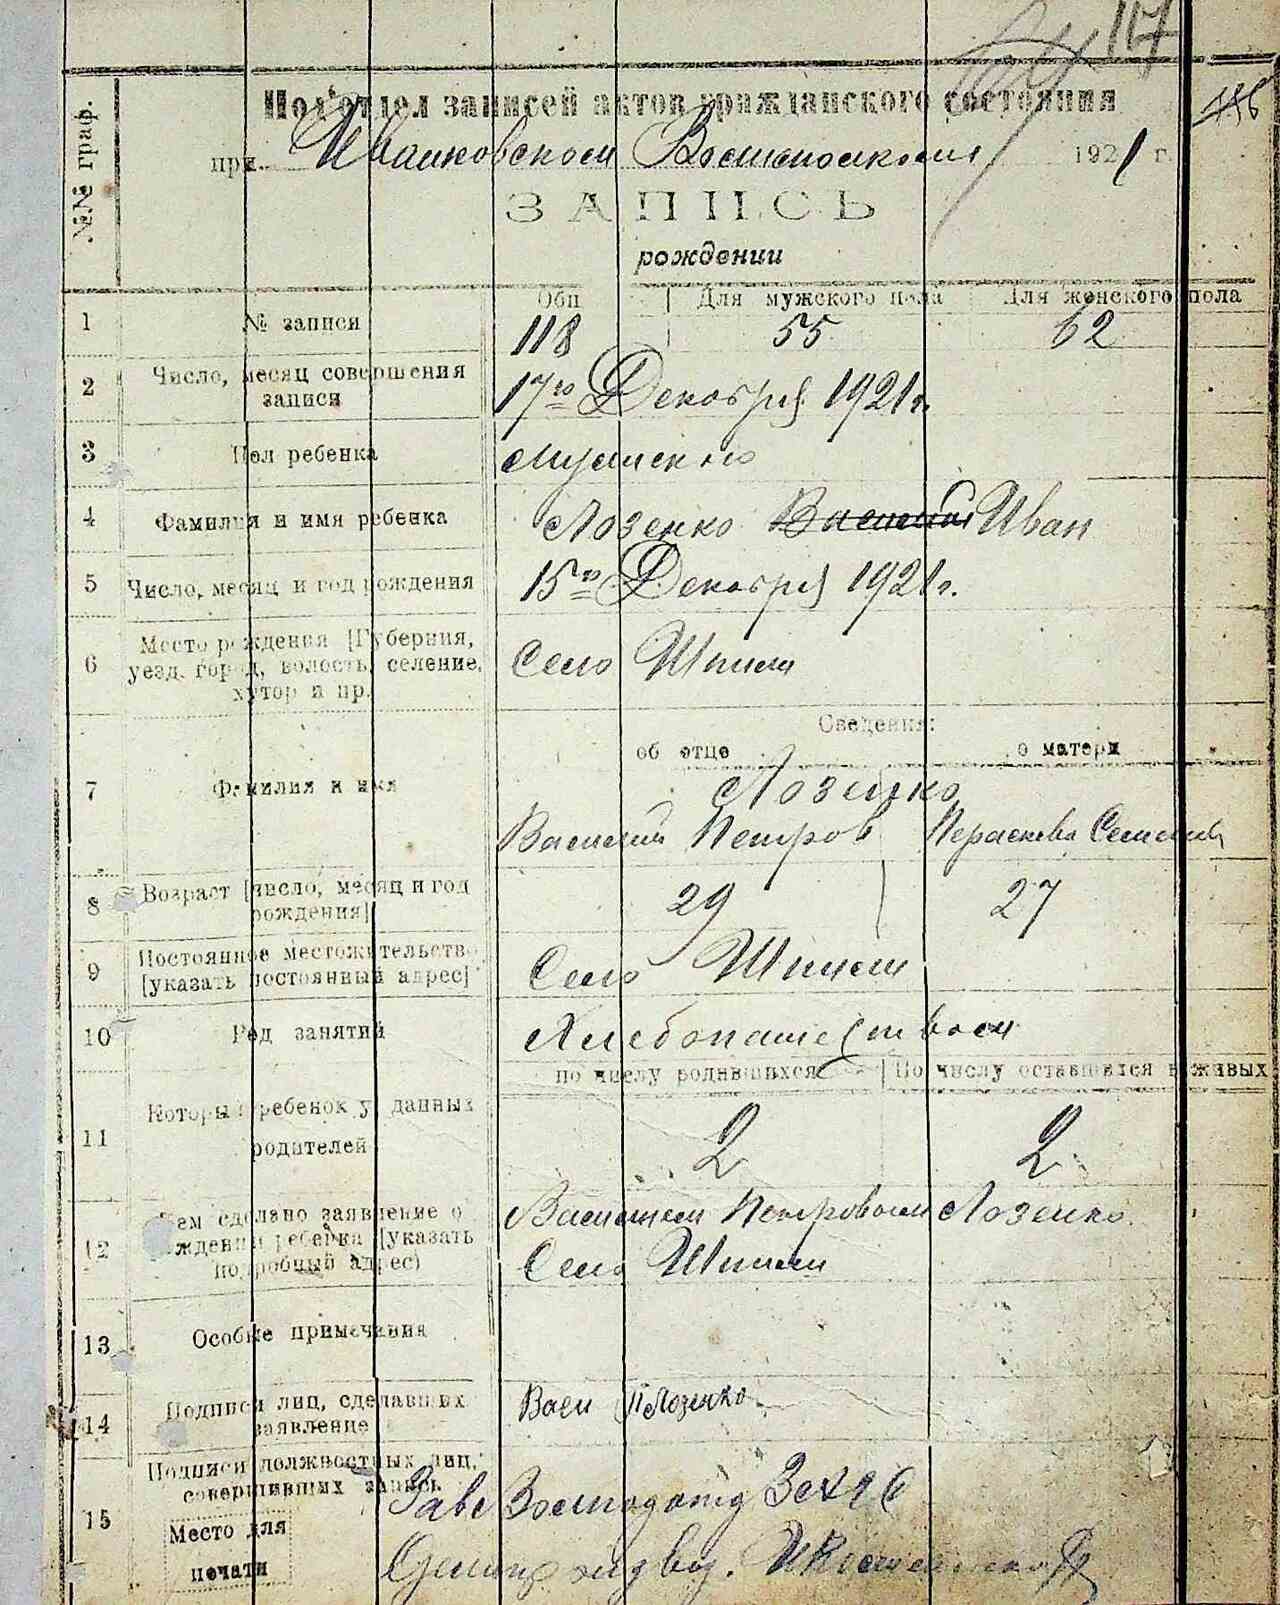 117
116
№№ граф.
Подотдел записей актов гражданского состояния
при Иванковском Волисполкоме 1921 г.
ЗАПИСЬ
рождении
Общ Для мужского пола Для женского пола
1 № записи 118 55 62
2 Число, месяц совершения записи 17го Декабря 1921 г.
3 Пол ребенка Мужское
4 Фамилия и имя ребенка Лозенко Василий Иван
5 Число, месяц и год рождения 15го Декабря 1921 г.
6 Место рождения [Губерния, уезд, город, волость, селение, хутор и пр. Село Шпили
Сведения:
об отце о матери
Лозенко
7 Фамилия и имя Василий Петров Параскева
8 Возраст [число, месяц и год рождения] 29 27
9 Постоянное местожительство [указать постоянный адрес] Село Шпили
10 Род занятий Хлебопашеством
по числу родившихся По числу оставшихся в живых
11 Который ребенок у данных родителей 2 2
12 Кем сделано заявление о рождении ребенка [указать подробный адрес) Василием Петровичем Лозенко.
Село Шпили
13 Особые примечания
14 Подписи лиц, сделавших заявление Васи П Лозенко
15 Подписи должностных лиц, совершивших запись
Место для
печати